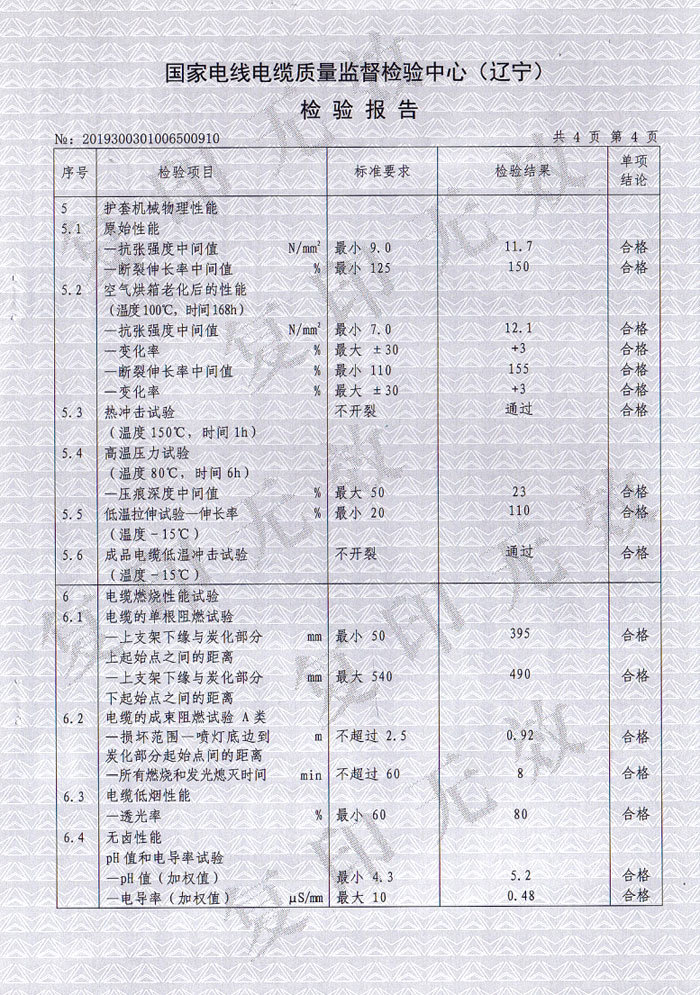 国家电线电缆质量监督检验中心（辽宁）
检 验 报 告
№：2019300301006500910 共 4 页 第 4 页
序号 检验项目 标准要求 检验结果 单项结论
5 护套机械物理性能
5.1 原始性能
—抗张强度中间值 N/mm² 最小 9.0 11.7 合格
—断裂伸长率中间值 % 最小 125 150 合格
5.2 空气烘箱老化后的性能
（温度100℃，时间168h）
—抗张强度中间值 N/mm² 最小 7.0 12.1 合格
—变化率 % 最大 ±30 +3 合格
—断裂伸长率中间值 % 最小 110 155 合格
—变化率 % 最大 ±30 +3 合格
5.3 热冲击试验 不开裂 通过 合格
（温度150℃，时间1h）
5.4 高温压力试验
（温度80℃，时间6h）
—压痕深度中间值 % 最大 50 23 合格
5.5 低温拉伸试验—伸长率 % 最小 20 110 合格
（温度－15℃）
5.6 成品电缆低温冲击试验 不开裂 通过 合格
（温度－15℃）
6 电缆燃烧性能试验
6.1 电缆的单根阻燃试验
—上支架下缘与炭化部分 mm 最小 50 395 合格
上起始点之间的距离
—上支架下缘与炭化部分 mm 最大 540 490 合格
下起始点之间的距离
6.2 电缆的成束阻燃试验 A 类
—损坏范围—喷灯底边到 m 不超过 2.5 0.92 合格
炭化部分起始点间的距离
—所有燃烧和发光熄灭时间 min 不超过 60 8 合格
6.3 电缆低烟性能
—透光率 % 最小 60 80 合格
6.4 无卤性能
pH值和电导率试验
—pH值（加权值） 最小 4.3 5.2 合格
—电导率（加权值） μS/mm 最大 10 0.48 合格
复印无效
复印无效
复印无效
复印无效
复印无效